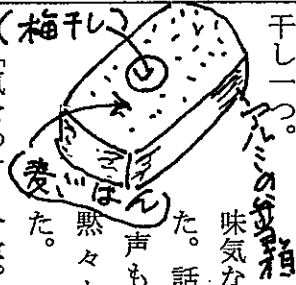 干し一つ。
(梅干し)
アルミの弁当箱
麦ごはん
味気な
た。話
声も
黙々と
た。